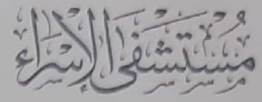 مُسْتَشْفَى الْإِسْرَاء